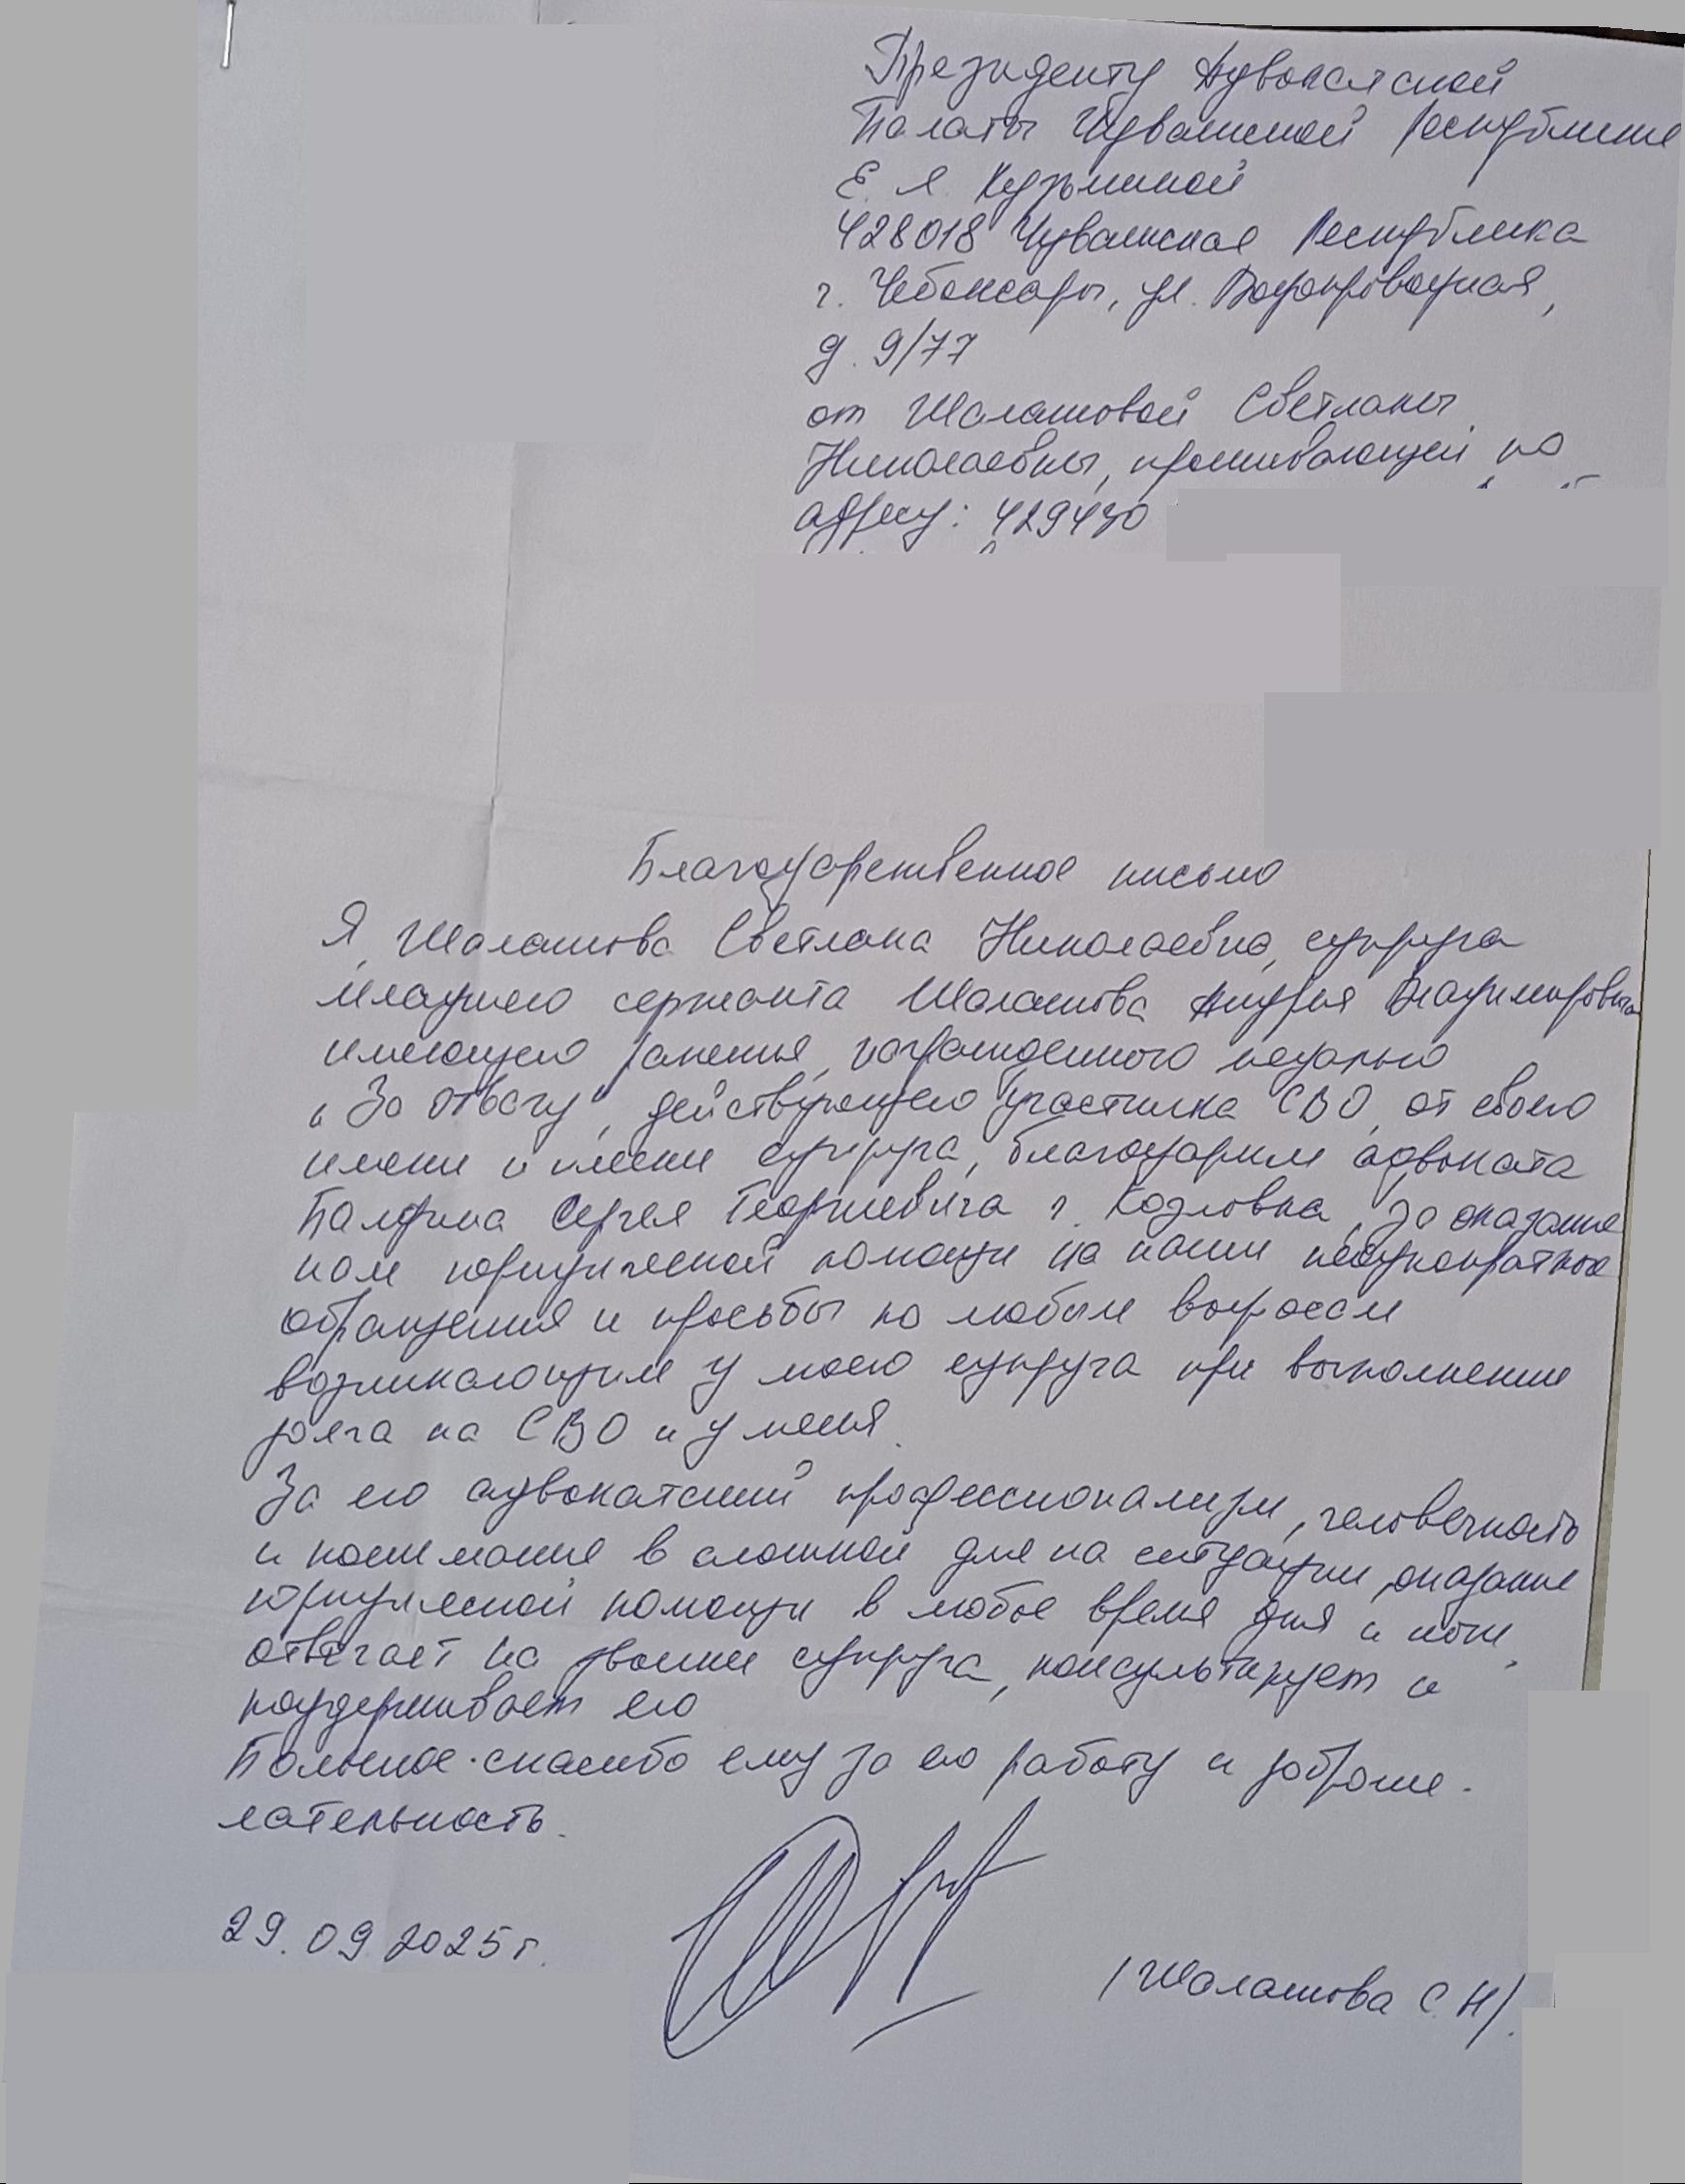 Президенту Адвокатской
Палаты Чувашской Республике
Е. Л. Кузьминой
428018 Чувашская Республика
г. Чебоксары, ул. Водопроводная,
д. 9/77
от Шалашовой Светланы
Николаевны, проживающей по
адресу: 429430
Благодарственное письмо
Я, Шалашова Светлана Николаевна, супруга
младшего сержанта Шалашова Андрея Владимировича
имеющего ранения, награжденного медалью
"За отвагу", действующего участника СВО, от своего
имени и имени супруга, благодарим адвоката
Сергея Георгиевича г. Козловка, за оказание
нам юридической помощи на наши неоднократные
обращения и просьбы по любым вопросам
возникающим у моего супруга при выполнении
долга на СВО и у меня.
За его адвокатский профессионализм, человечность
и понимание в сложной для на ситуации, оказание
юридической помощи в любое время дня и ночи,
отвечает на звонки супруга, консультирует и
поддерживает его
Большое спасибо ему за его работу и доброже-
лательность.
29.09.2025 г.
/Шалашова С. Н/.